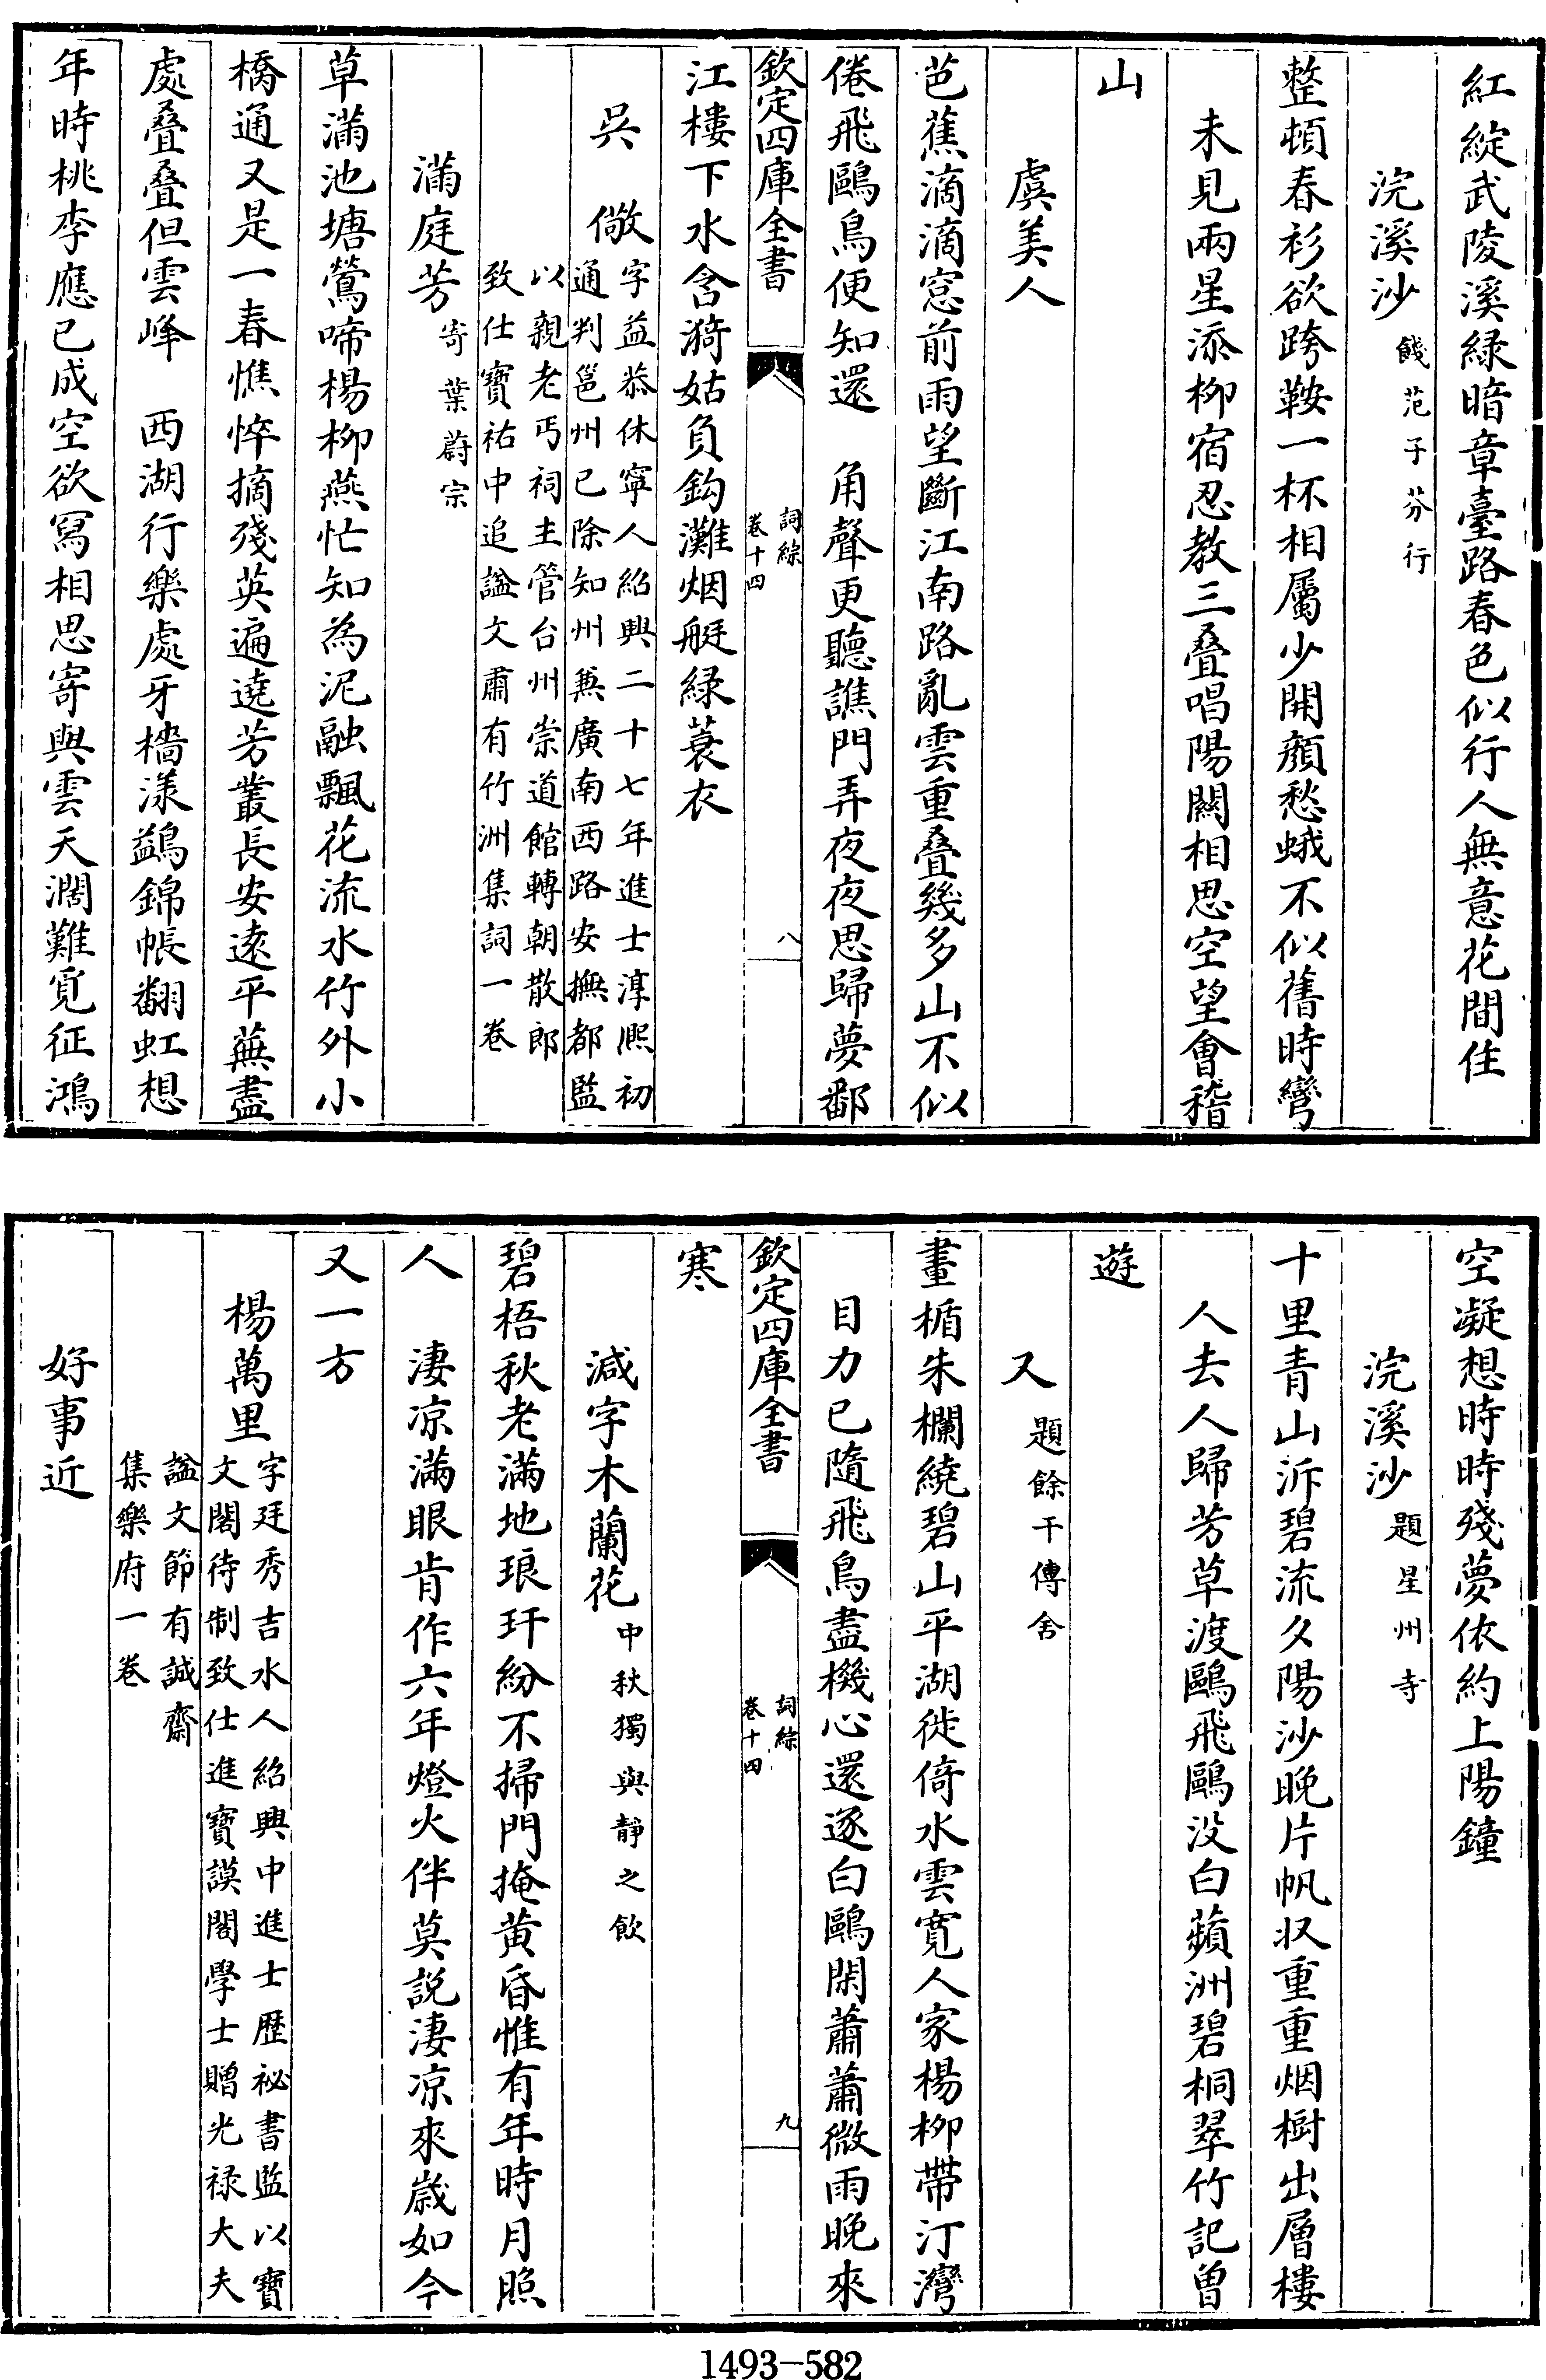 紅綻武陵溪緑暗章臺路春色似行人無意花間住
浣溪沙 餞范子芬行
整頓春衫欲跨鞍一杯相屬少開顔愁蛾不似舊時彎
未見兩星添柳宿忍教三叠唱陽關相思空望會稽
山
虞美人
芭蕉滴滴窓前雨望斷江南路亂雲重叠幾多山不似
倦飛鷗鳥便知還 角聲更聽譙門弄夜夜思歸夢鄱
欽定四庫全書 詞綜 卷十四 八
江樓下水含漪姑負鈎灘烟艇緑蓑衣
吳儆 字益恭休寧人紹興二十七年進士淳熙初
通判邕州已除知州兼廣南西路安撫都監
以親老丐祠主管台州崇道館轉朝散郎
致仕寶祐中追諡文肅有竹洲集詞一卷
滿庭芳 寄葉蔚宗
草滿池塘鶯啼楊柳燕忙知為泥融飄花流水竹外小
橋通又是一春憔悴摘殘英遍遶芳叢長安遠平蕪盡
處叠叠但雲峰 西湖行樂處牙檣漾鷁錦帳翻虹想
年時桃李應已成空欲寫相思寄與雲天濶難覓征鴻
空凝想時時殘夢依約上陽鐘
浣溪沙 題星州寺
十里青山泝碧流夕陽沙晚片帆収重重烟樹出層樓
人去人歸芳草渡鷗飛鷗没白蘋洲碧桐翠竹記曾
遊
又 題餘干傳舍
畫楯朱欄繞碧山平湖徙倚水雲寛人家楊柳帶汀灣
目力已隨飛鳥盡機心還逐白鷗閑蕭蕭微雨晚來
欽定四庫全書 詞綜 卷十四 九
寒
減字木蘭花 中秋獨與靜之飲
碧梧秋老滿地琅玕紛不掃門掩黄昏惟有年時月照
人 淒凉滿眼肯作六年燈火伴莫説淒凉來嵗如今
又一方
楊萬里 字廷秀吉水人紹興中進士歴祕書監以寶
文閣待制致仕進寶謨閣學士贈光禄大夫
諡文節有誠齋
集樂府一卷
好事近
1493-582